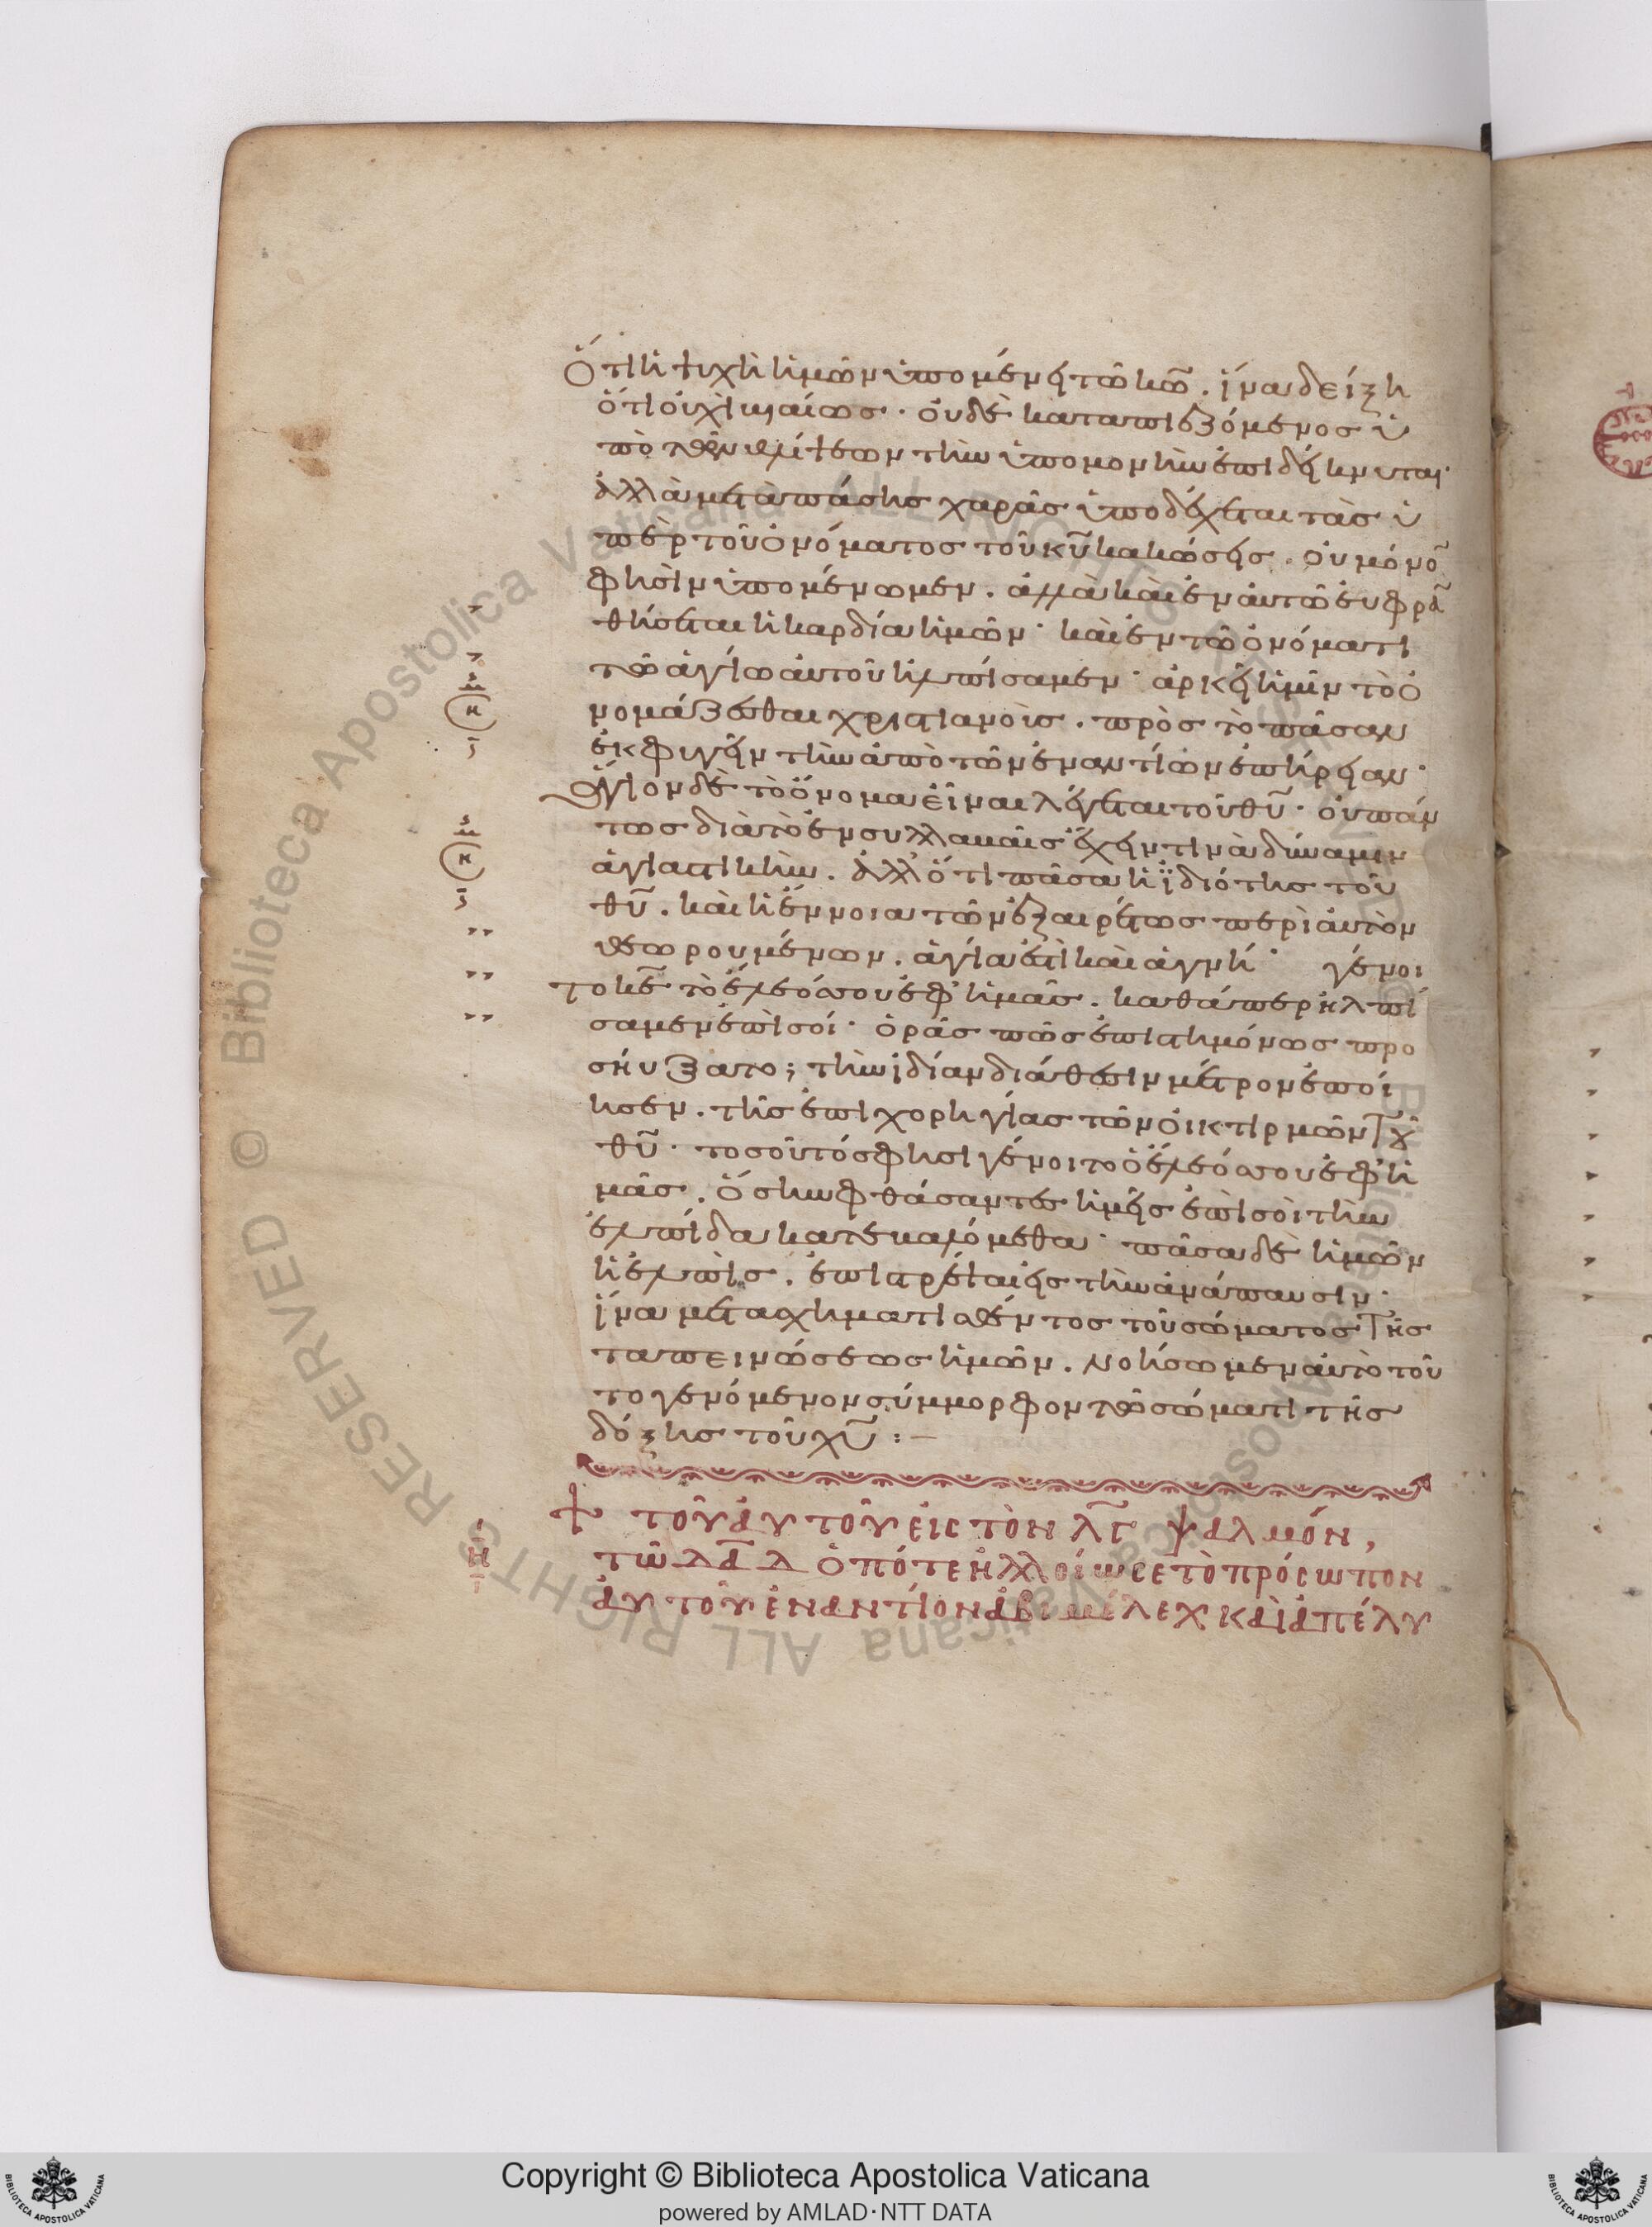 Ὅτι ἡ ψυχὴ ἡμῶν ὑπομένει τῶ κω̅. ἵνα δείξη
ὅτι οὐχὶ βιαίως· οὐδὲ καταπιεζόμενος ὑ
πὸ τῶν θλίψεων τὴν ὑπομονὴν ἐπιδείκνυται·
ἀλλὰ μετὰ πάσης χαρᾶς ὑποδέχεται τὰς ὑ
πὲρ τοῦ ὀνόματος τοῦ κυ̅ κακώσεις. οὐ μόνο̅
φησὶν ὑπομένωμεν. ἀλλὰ καὶ ἐν αὐτῶ εὐφρα̅
θήσεται ἡ καρδία ἡμῶν· καὶ ἐν τῶ ὀνόματι
τῶ ἁγίω αὐτοῦ ἠλπίσαμεν· ἀρκεῖ ἡμῖν τὸ ὀ
νομάζεσθαι χριστιανοῖς. πρὸς τὸ πᾶσαν
ἐκφυγεῖν τὴν ἀπὸ τῶν ἐναντίων ἐπήρειαν·
Ἅγιον δὲ τὸ ὄνομα εἶναι λέγεται τοῦ θυ̅· οὐ πάν
τως διὰ τὸ ἐν συλλαβαῖς ἔχειν τινὰ δύναμιν
ἁγιαστικὴν. ἀλλ' ὅτι πᾶσα ἡ ἰδιότης τοῦ
θυ̅. καὶ ἡ ἔννοια τῶν ἐξαιρέτως περὶ αὐτὸν
θεωρουμένων. ἁγία ἐστὶ καὶ ἁγνή· γένοι
το κε̅ τὸ ἔλεός σου ἐφ' ἡμᾶς. καθάπερ ἠλπί
σαμεν ἐπὶ σοί· ὁρᾶς πῶς ἐπιστημόνως προ
σηύξατο; τὴν ἰδίαν διάθεσιν μέτρον ἐποί
ησεν. τῆς ἐπιχορηγίας τῶν οἰκτιρμῶν τοῦ
θυ̅· τοσοῦτός φησι γένοιτο ὁ ἔλεός σου ἐφ' ἡ
μᾶς. ὅσην φθάσαντες ἡμεῖς ἐπὶ σοὶ τὴν
ἐλπίδα κατεβαλόμεθα· πᾶσα δὲ ἡμῶν
ἡ ἐλπὶς. ἐπιστρέψαι εἰς τὴν ἀνάπαυσιν·
ἵνα μετασχηματισθέντος τοῦ σώματος τῆς
ταπεινώσεως ἡμῶν. νοήσωμεν αὐτὸ τοῦ
το γενόμενον σύμμορφον τῶ σώματι τῆς
δόξης τοῦ χυ̅:—
+ τοῦ αὐτοῦ εἰς τὸν λγ̅ ψαλμόν,
τῶ δα̅δ ὁπότε ἠλλοίωσε τὸ πρόσωπον
αὐτοῦ ἐναντίον ἀβιμέλεχ καὶ ἀπέλυ
Copyright © Biblioteca Apostolica Vaticana
powered by AMLAD·NTT DATA